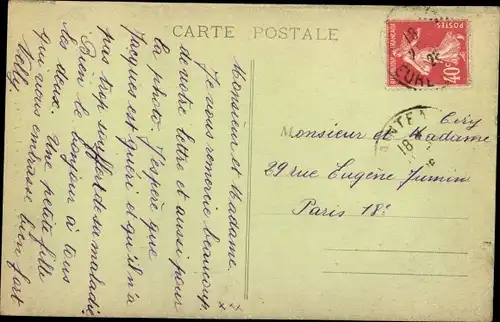 CARTE POSTALE
Monsieur et Madame.
Je vous remercie beaucoup
de votre lettre et aussi pour
la photo. J'espère que
Jacques est guéri et qu'il n'a
pas trop souffert de sa maladie
Bien le bonjour à tous
les deux. Une petite fille
qui vous embrasse bien fort
Nelly.
40c
18
EURE
18
Monsieur et Madame
29 rue Eugène Jumin
Paris 18e